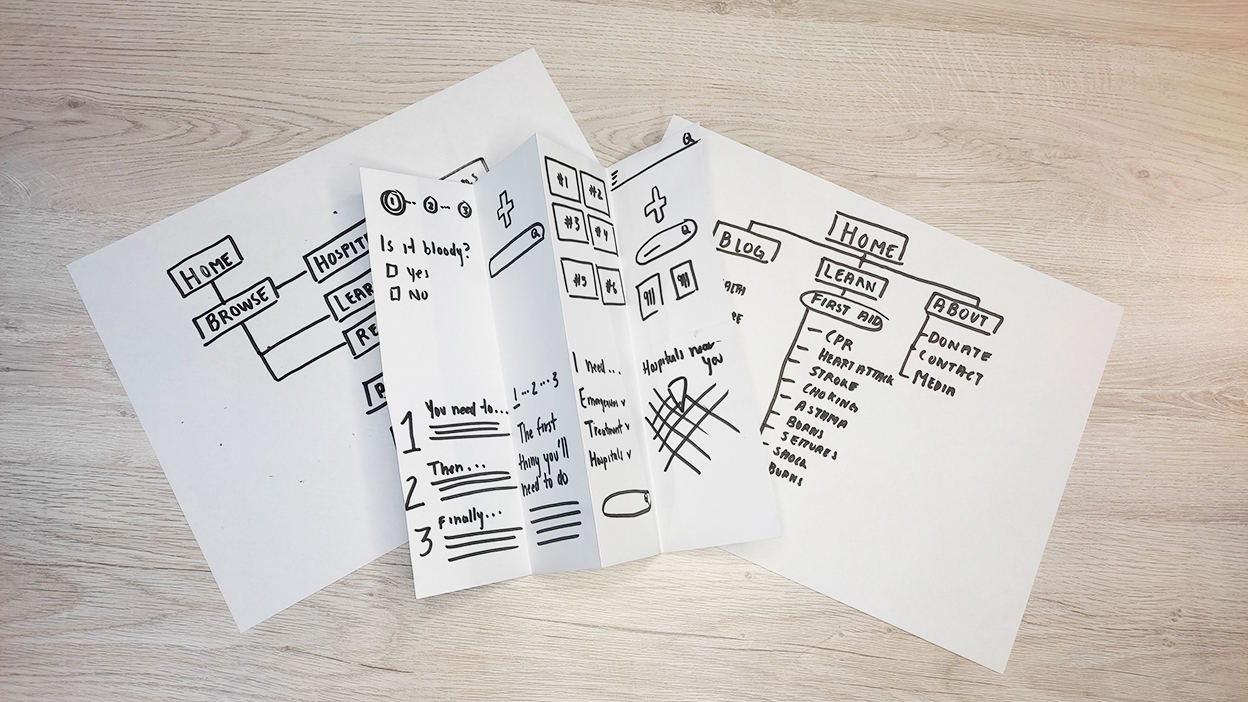 HOME
BROWSE
HOSPIT
LEAR
RE
1 2 3
Is it bloody?
Yes
No
1 You need to...
2 Then...
3 Finally...
1...2...3
The first
thing you'll
need to do
#1 #2
#3 #4
#5 #6
I need...
Emergencies v
Treatment v
Hospitals v
911 911
Hospitals near
you
HOME
BLOG
LEARN
FIRST AID
CPR
HEART ATTACK
STROKE
CHOKING
ASTHMA
BURNS
SEIZURES
SHOCK
BURNS
ABOUT
DONATE
CONTACT
MEDIA